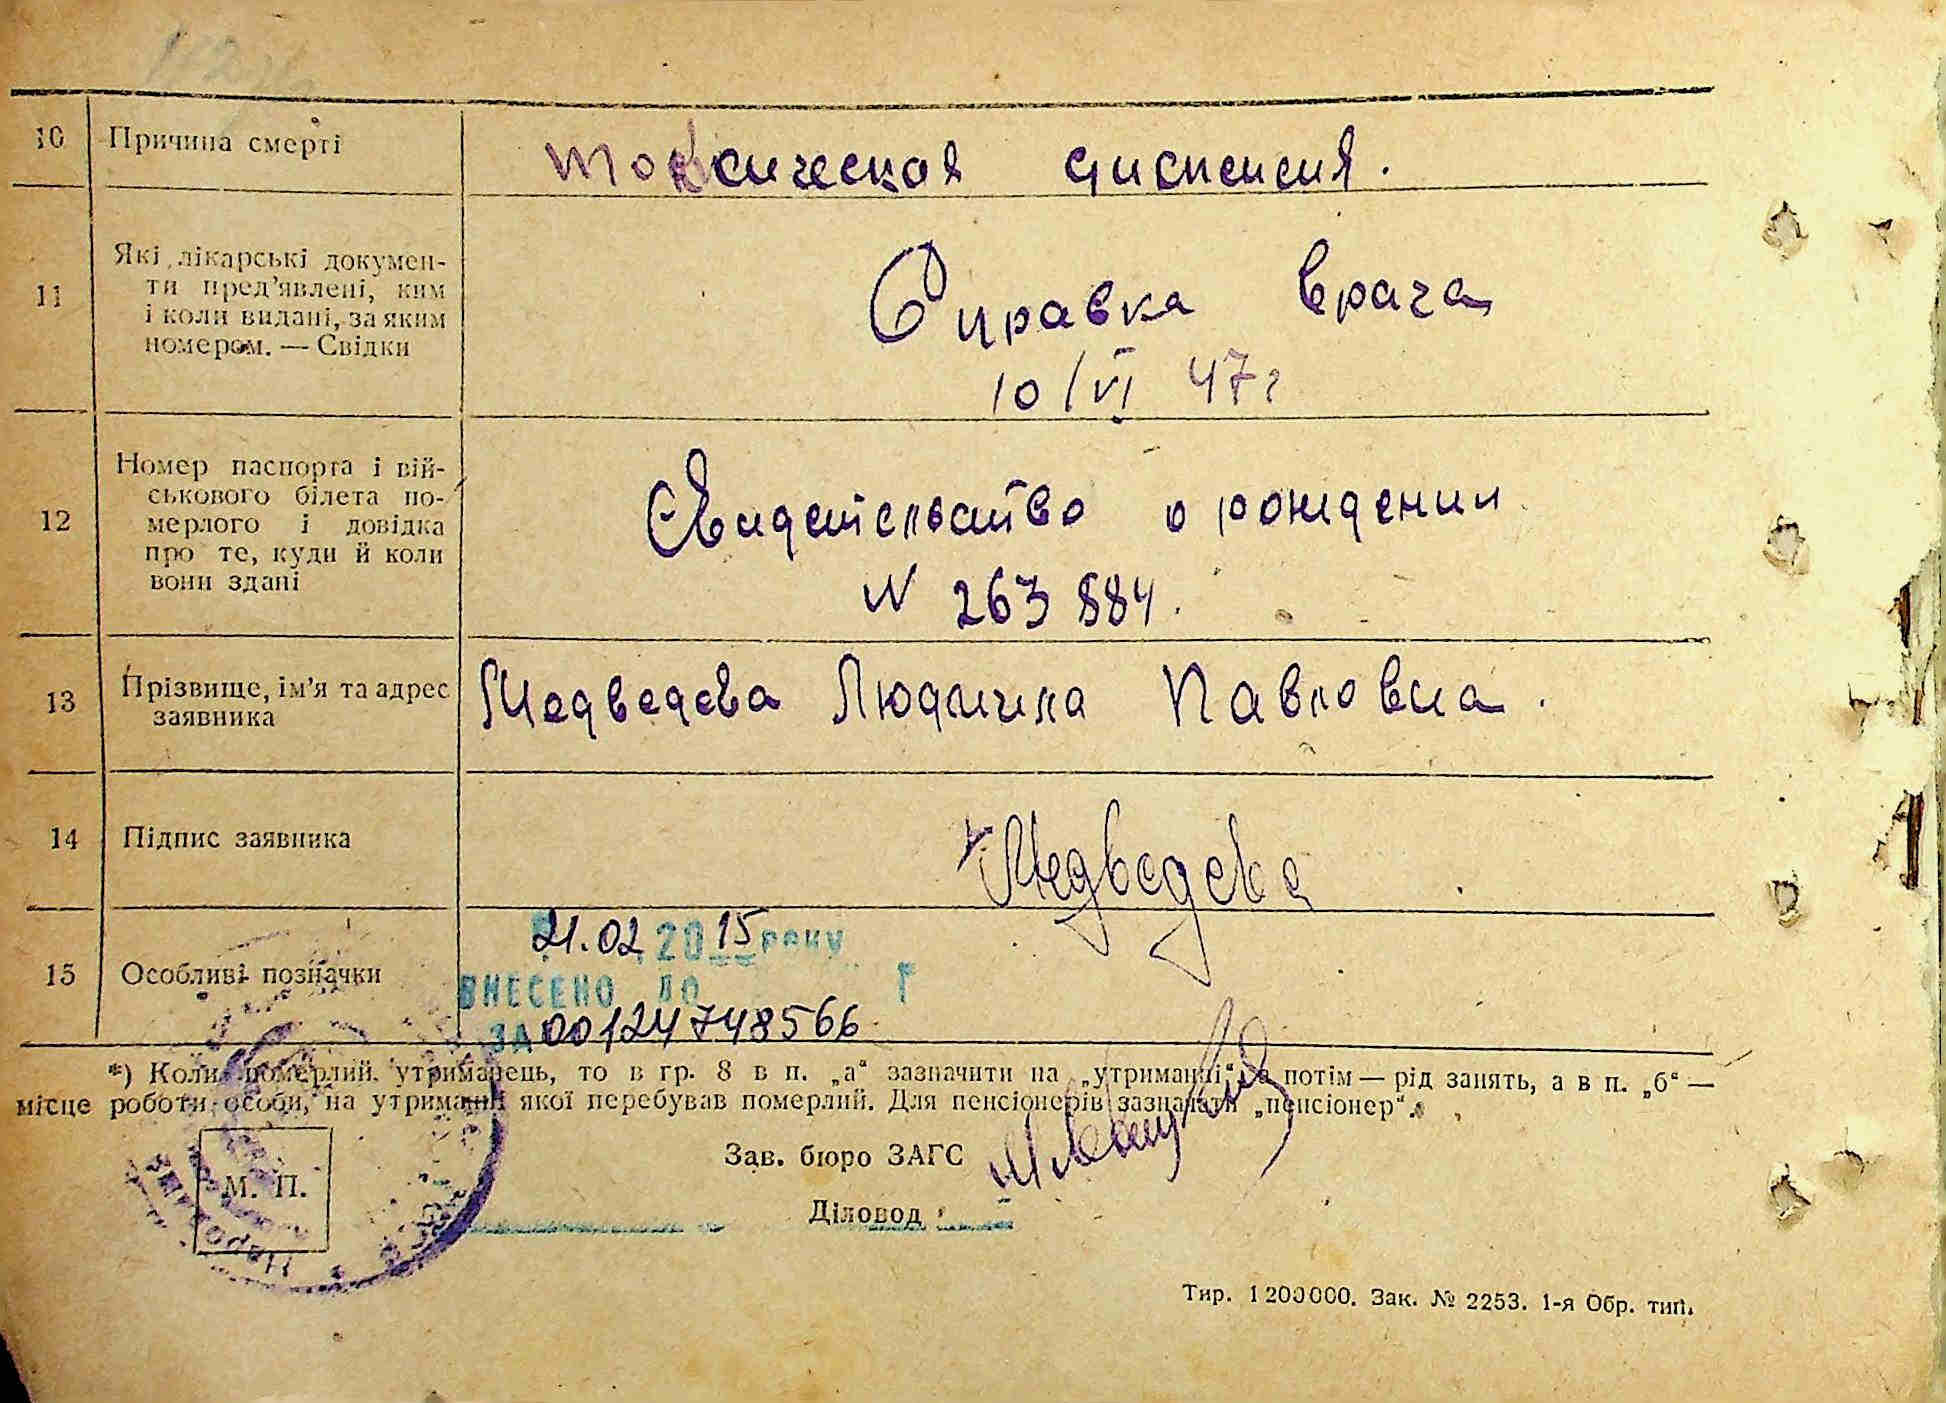 10 Причина смерті токсическая диспепсия.
11 Які лікарські докумен-
ти пред’явлені, ким
і коли видані, за яким
номером. — Свідки
Справка врача
10/VI 47г
12 Номер паспорта і вій-
ськового білета по-
мерлого і довідка
про те, куди й коли
вони здані
Свидетельство о рождении
N 263884.
13 Прізвище, ім’я та адрес
заявника
Медведева Людмила Павловна.
14 Підпис заявника Медведева
15 Особливі позначки
21.02.2015 року
ВНЕСЕНО ДО
ЗА 00124748566
*) Коли померлий утриманець, то в гр. 8 в п. „а“ зазначити на „утриманні“ а потім — рід занять, а в п. „б“ —
місце роботи особи, на утриманні якої перебував померлий. Для пенсіонерів зазначати „пенсіонер“.
Зав. бюро ЗАГС
М. П.
Діловод
Тир. 1200000. Зак. № 2253. 1-я Обр. тип.